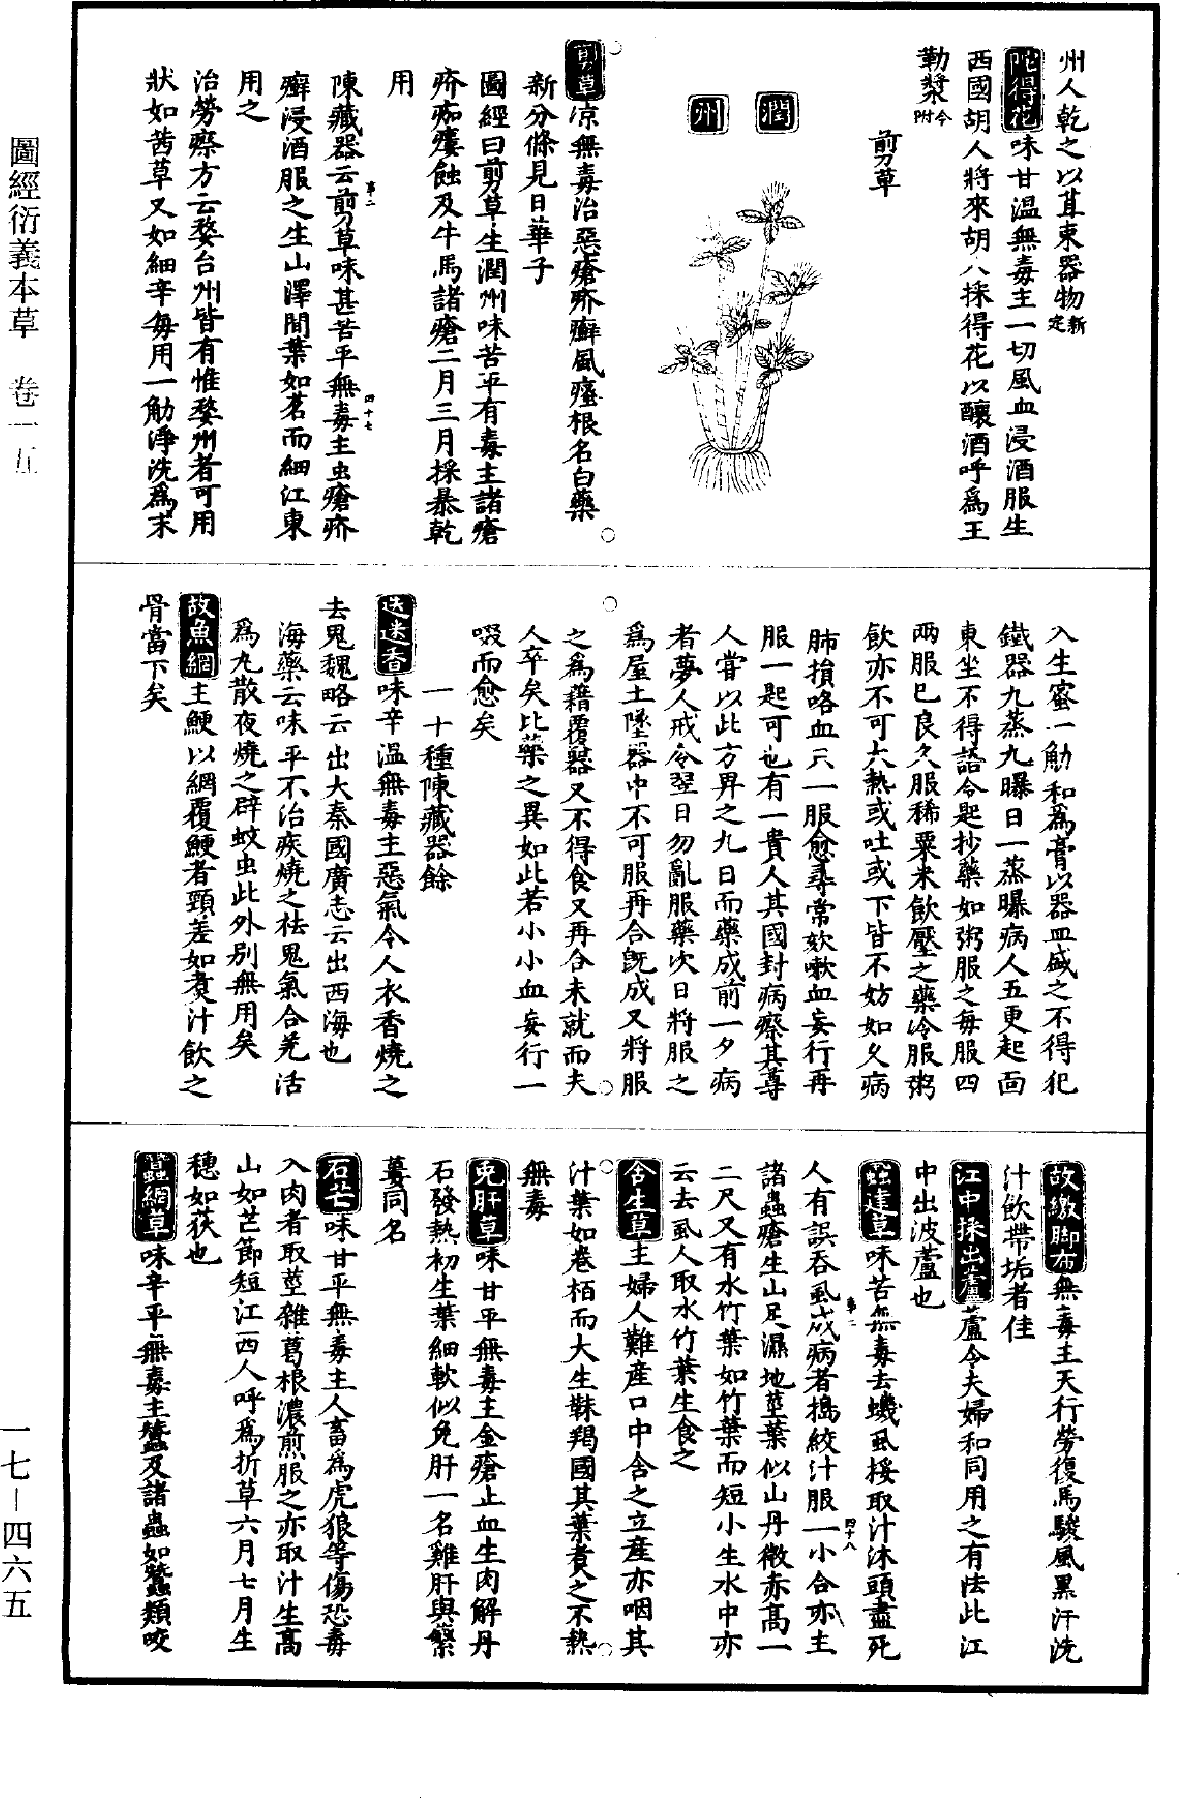 州人乾之以茸束器物新定
陀得花味甘溫無毒主一切風血浸酒服生
西國胡人將來胡人採得花以釀酒呼爲王
勒漿今附
剪草
潤
州
剪草凉無毒治惡瘡疥癬風瘙根名白藥
新分條見日華子
圖經曰剪草生潤州味苦平有毒主諸瘡
疥痂瘻蝕及牛馬諸瘡二月三月採暴乾
用
陳藏器云剪草味甚苦平無毒主虫瘡疥
癬浸酒服之生山澤間葉如茗而細江東
用之
治勞瘵方云婺台州皆有惟婺州者可用
狀如茜草又如細辛每用一觔淨洗爲末
入生蜜一觔和爲膏以器皿盛之不得犯
鐵器九蒸九曝日一蒸曝病人五更起面
東坐不得語令匙抄藥如粥服之每服四
兩服已良久服稀粟米飲壓之藥冷服粥
飲亦不可大熱或吐或下皆不妨如久病
肺損咯血只一服愈尋常欬嗽血妄行再
服一匙可也有一貴人其國封病瘵其尊
人嘗以此方畀之九日而藥成前一夕病
者夢人戒令翌日勿亂服藥次日將服之
爲屋土墜器中不可服再合既成又將服
之爲藉覆器又不得食又再合未就而夫
人卒矣比藥之異如此若小小血妄行一
啜而愈矣
一十種陳藏器餘
迷迭香味辛溫無毒主惡氣令人衣香燒之
去鬼魏略云出大秦國廣志云出西海也
海藥云味平不治疾燒之祛鬼氣合羌活
爲丸散夜燒之辟蚊虫此外別無用矣
故魚網主鯁以網覆鯁者頸差如煑汁飲之
骨當下矣
故繳脚布無毒主天行勞復馬駿風黑汗洗
汁飲帶垢者佳
江中採出蘆蘆令夫婦和同用之有法此江
中出波蘆也
虱建草味苦無毒去蟣虱挼取汁沐頭盡死
人有誤吞虱成病者搗絞汁服一小合亦主
諸蟲瘡生山足濕地莖葉似山丹微赤高一
二尺又有水竹葉如竹葉而短小生水中亦
云去虱人取水竹葉生食之
含生草主婦人難産口中含之立産亦咽其
汁葉如卷栢而大生靺羯國其葉煑之不熱
無毒
兎肝草味甘平無毒主金瘡止血生肉解丹
石發熱初生葉細軟似兎肝一名雞肝與蘩
蔞同名
石芒味甘平無毒主人畜爲虎狼等傷恐毒
入肉者取莖雜葛根濃煎服之亦取汁生高
山如芒節短江西人呼爲折草六月七月生
穗如荻也
蠶網草味辛平無毒主蠶及諸蟲如蠶類咬
圖經衍義本草　卷一五
一七－四六五